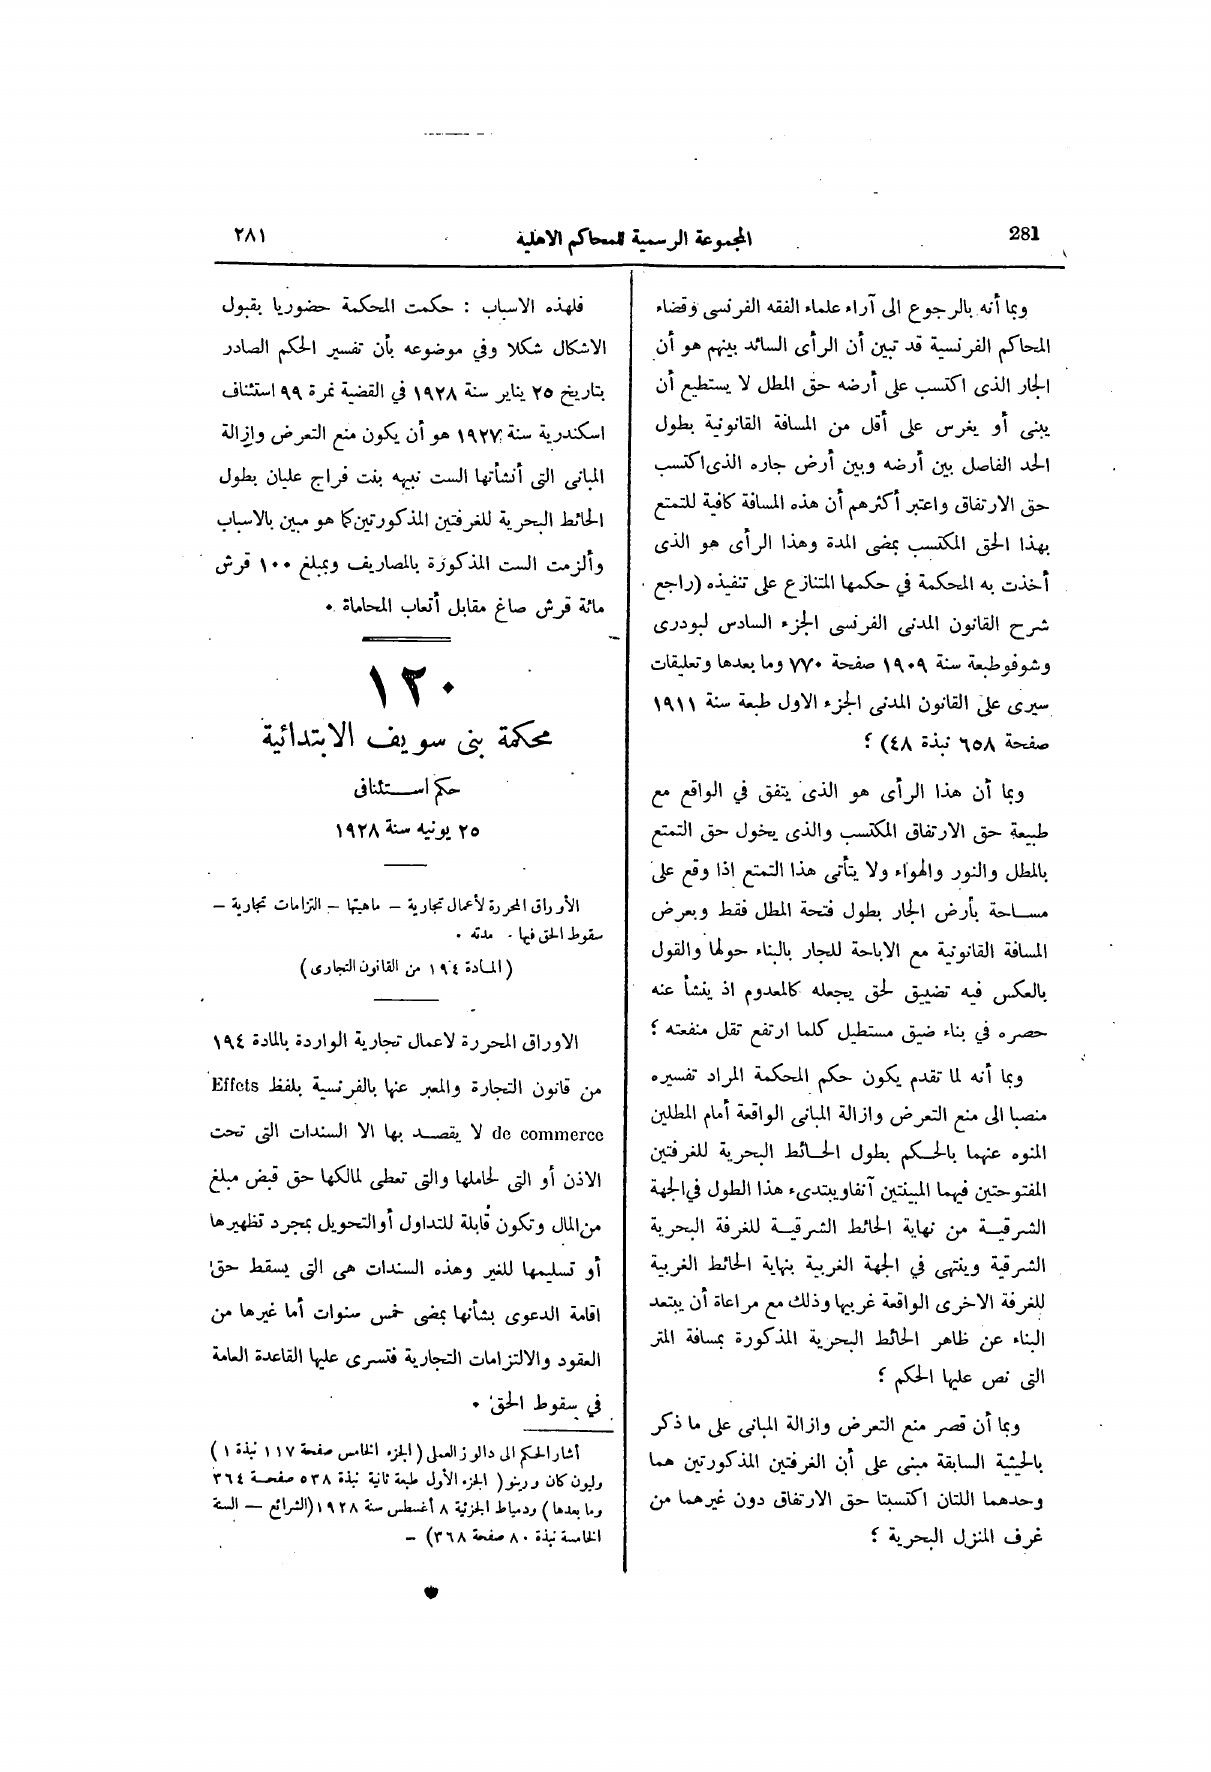 281
المجموعة الرسمية للمحاكم الاهلية
٢٨١
وبما أنه بالرجوع الى آراء علماء الفقه الفرنسى وقضاء
المحاكم الفرنسية قد تبين أن الرأى السائد بينهم هو أن
الجار الذى اكتسب على أرضه حق المطل لا يستطيع أن
يبنى أو يغرس على أقل من المسافة القانونية بطول
الحد الفاصل بين أرضه وبين أرض جاره الذى اكتسب
حق الارتفاق واعتبر أكثرهم أن هذه المسافة كافية للتمتع
بهذا الحق المكتسب بمضى المدة وهذا الرأى هو الذى
أخذت به المحكمة في حكمها المتنازع على تنفيذه (راجع
شرح القانون المدنى الفرنسى الجزء السادس لبودرى
وشوفو طبعة سنة ١٩٠٩ صفحة ٧٧٠ وما بعدها وتعليقات
سيرى على القانون المدنى الجزء الاول طبعة سنة ١٩١١
صفحة ٦٥٨ نبذة ٤٨) ؛
وبما أن هذا الرأى هو الذى يتفق في الواقع مع
طبيعة حق الارتفاق المكتسب والذى يخول حق التمتع
بالمطل والنور والهواء ولا يتأتى هذا التمتع اذا وقع على
مساحة بأرض الجار بطول فتحة المطل فقط وبعرض
المسافة القانونية مع الاباحة للجار بالبناء حولها والقول
بالعكس فيه تضييق لحق يجعله كالمعدوم اذ ينشأ عنه
حصره في بناء ضيق مستطيل كلما ارتفع تقل منفعته ؛
وبما أنه لما تقدم يكون حكم المحكمة المراد تفسيره
منصبا الى منع التعرض وازالة المبانى الواقعة أمام المطلين
المنوه عنهما بالحكم بطول الحائط البحرية للغرفتين
المفتوحتين فيهما المبينتين آنفا ويبتدىء هذا الطول في الجهة
الشرقية من نهاية الحائط الشرقية للغرفة البحرية
الشرقية وينتهى في الجهة الغربية بنهاية الحائط الغربية
للغرفة الاخرى الواقعة غربيها وذلك مع مراعاة أن يبتعد
البناء عن ظاهر الحائط البحرية المذكورة بمسافة المتر
التى نص عليها الحكم ؛
وبما أن قصر منع التعرض وازالة المبانى على ما ذكر
بالحيثية السابقة مبنى على أن الغرفتين المذكورتين هما
وحدهما اللتان اكتسبتا حق الارتفاق دون غيرهما من
غرف المنزل البحرية ؛
فلهذه الاسباب : حكمت المحكمة حضوريا بقبول
الاشكال شكلا وفي موضوعه بأن تفسير الحكم الصادر
بتاريخ ٢٥ يناير سنة ١٩٢٨ في القضية نمرة ٩٩ استئناف
اسكندرية سنة ١٩٢٧ هو أن يكون منع التعرض وازالة
المبانى التى أنشأتها الست نبيهه بنت فراج عليان بطول
الحائط البحرية للغرفتين المذكورتين كما هو مبين بالاسباب
وألزمت الست المذكورة بالمصاريف وبمبلغ ١٠٠ قرش
مائة قرش صاغ مقابل أتعاب المحاماة .
١٢٠
محكمة بنى سويف الابتدائية
حكم استئنافى
٢٥ يونيه سنة ١٩٢٨
الأوراق المحررة لأعمال تجارية – ماهيتها – التزامات تجارية –
سقوط الحق فيها . مدته .
(المادة ١٩٤ من القانون التجارى)
الاوراق المحررة لاعمال تجارية الواردة بالمادة ١٩٤
من قانون التجارة والمعبر عنها بالفرنسية بلفظ Effets
de commerce لا يقصد بها الا السندات التى تحت
الاذن أو التى لحاملها والتى تعطى لمالكها حق قبض مبلغ
من المال وتكون قابلة للتداول أو التحويل بمجرد تظهيرها
أو تسليمها للغير وهذه السندات هى التى يسقط حق
اقامة الدعوى بشأنها بمضى خمس سنوات أما غيرها من
العقود والالتزامات التجارية فتسرى عليها القاعدة العامة
في سقوط الحق .
أشار الحكم الى دالوز العملى (الجزء الخامس صفحة ١١٧ نبذة ١)
وليون كان ورينو (الجزء الأول طبعة ثانية نبذة ٥٣٨ صفحة ٣٦٤
وما بعدها) ودمياط الجزئية ٨ أغسطس سنة ١٩٢٨ (الشرائع – السنة
الخامسة نبذة ٨٠ صفحة ٣٦٨) –